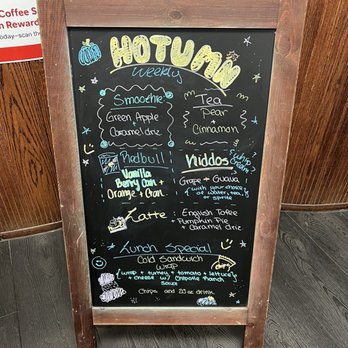 Coffee S
n Reward
oday—scan th
HOTUMN
Weekly
Smoothie
Green Apple
Caramel driz
Tea
Pear
+
Cinnamon
Redbull
Vanilla
Berry Can +
Orange + Cran
Kiddos
Grape + Guava
{with your choice
of water, tea,
or sprite
Latte
: English Toffee
+ Pumpkin Pie
+ Caramel driz
Lunch Special
Cold Sandwich
Wrap
{wrap + turkey + tomato + lettuce}
+ cheese w/ Chipotle Ranch
Sauce
Chips and 20oz drink